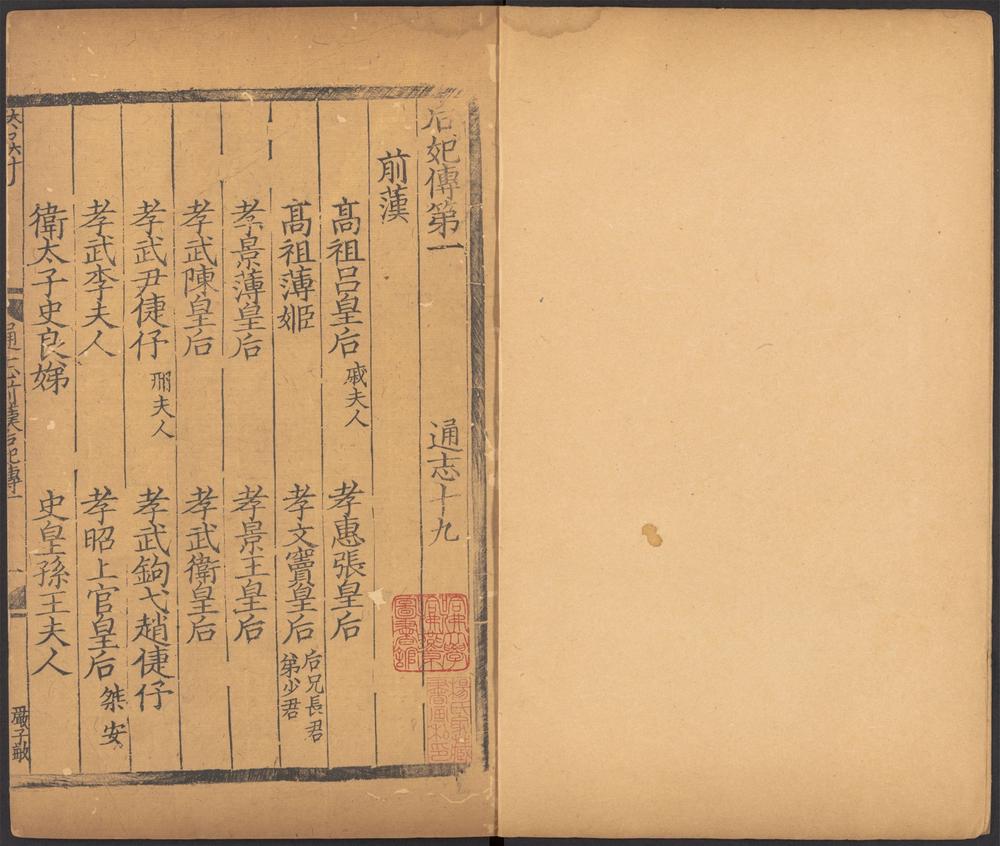 后妃傳第一 通志十九
前漢
高祖呂皇后 戚夫人 孝惠張皇后
高祖薄姬 孝文竇皇后 后兄長君 第少君
孝景薄皇后 孝景王皇后
孝武陳皇后 孝武衛皇后
孝武尹倢伃 邢夫人 孝武鉤弋趙倢伃
孝武李夫人 孝昭上官皇后 桀 安
衛太子史良娣 史皇孫王夫人
通志前漢后妃傳一 一 嚴子敏
哈佛大學哈佛燕京圖書館